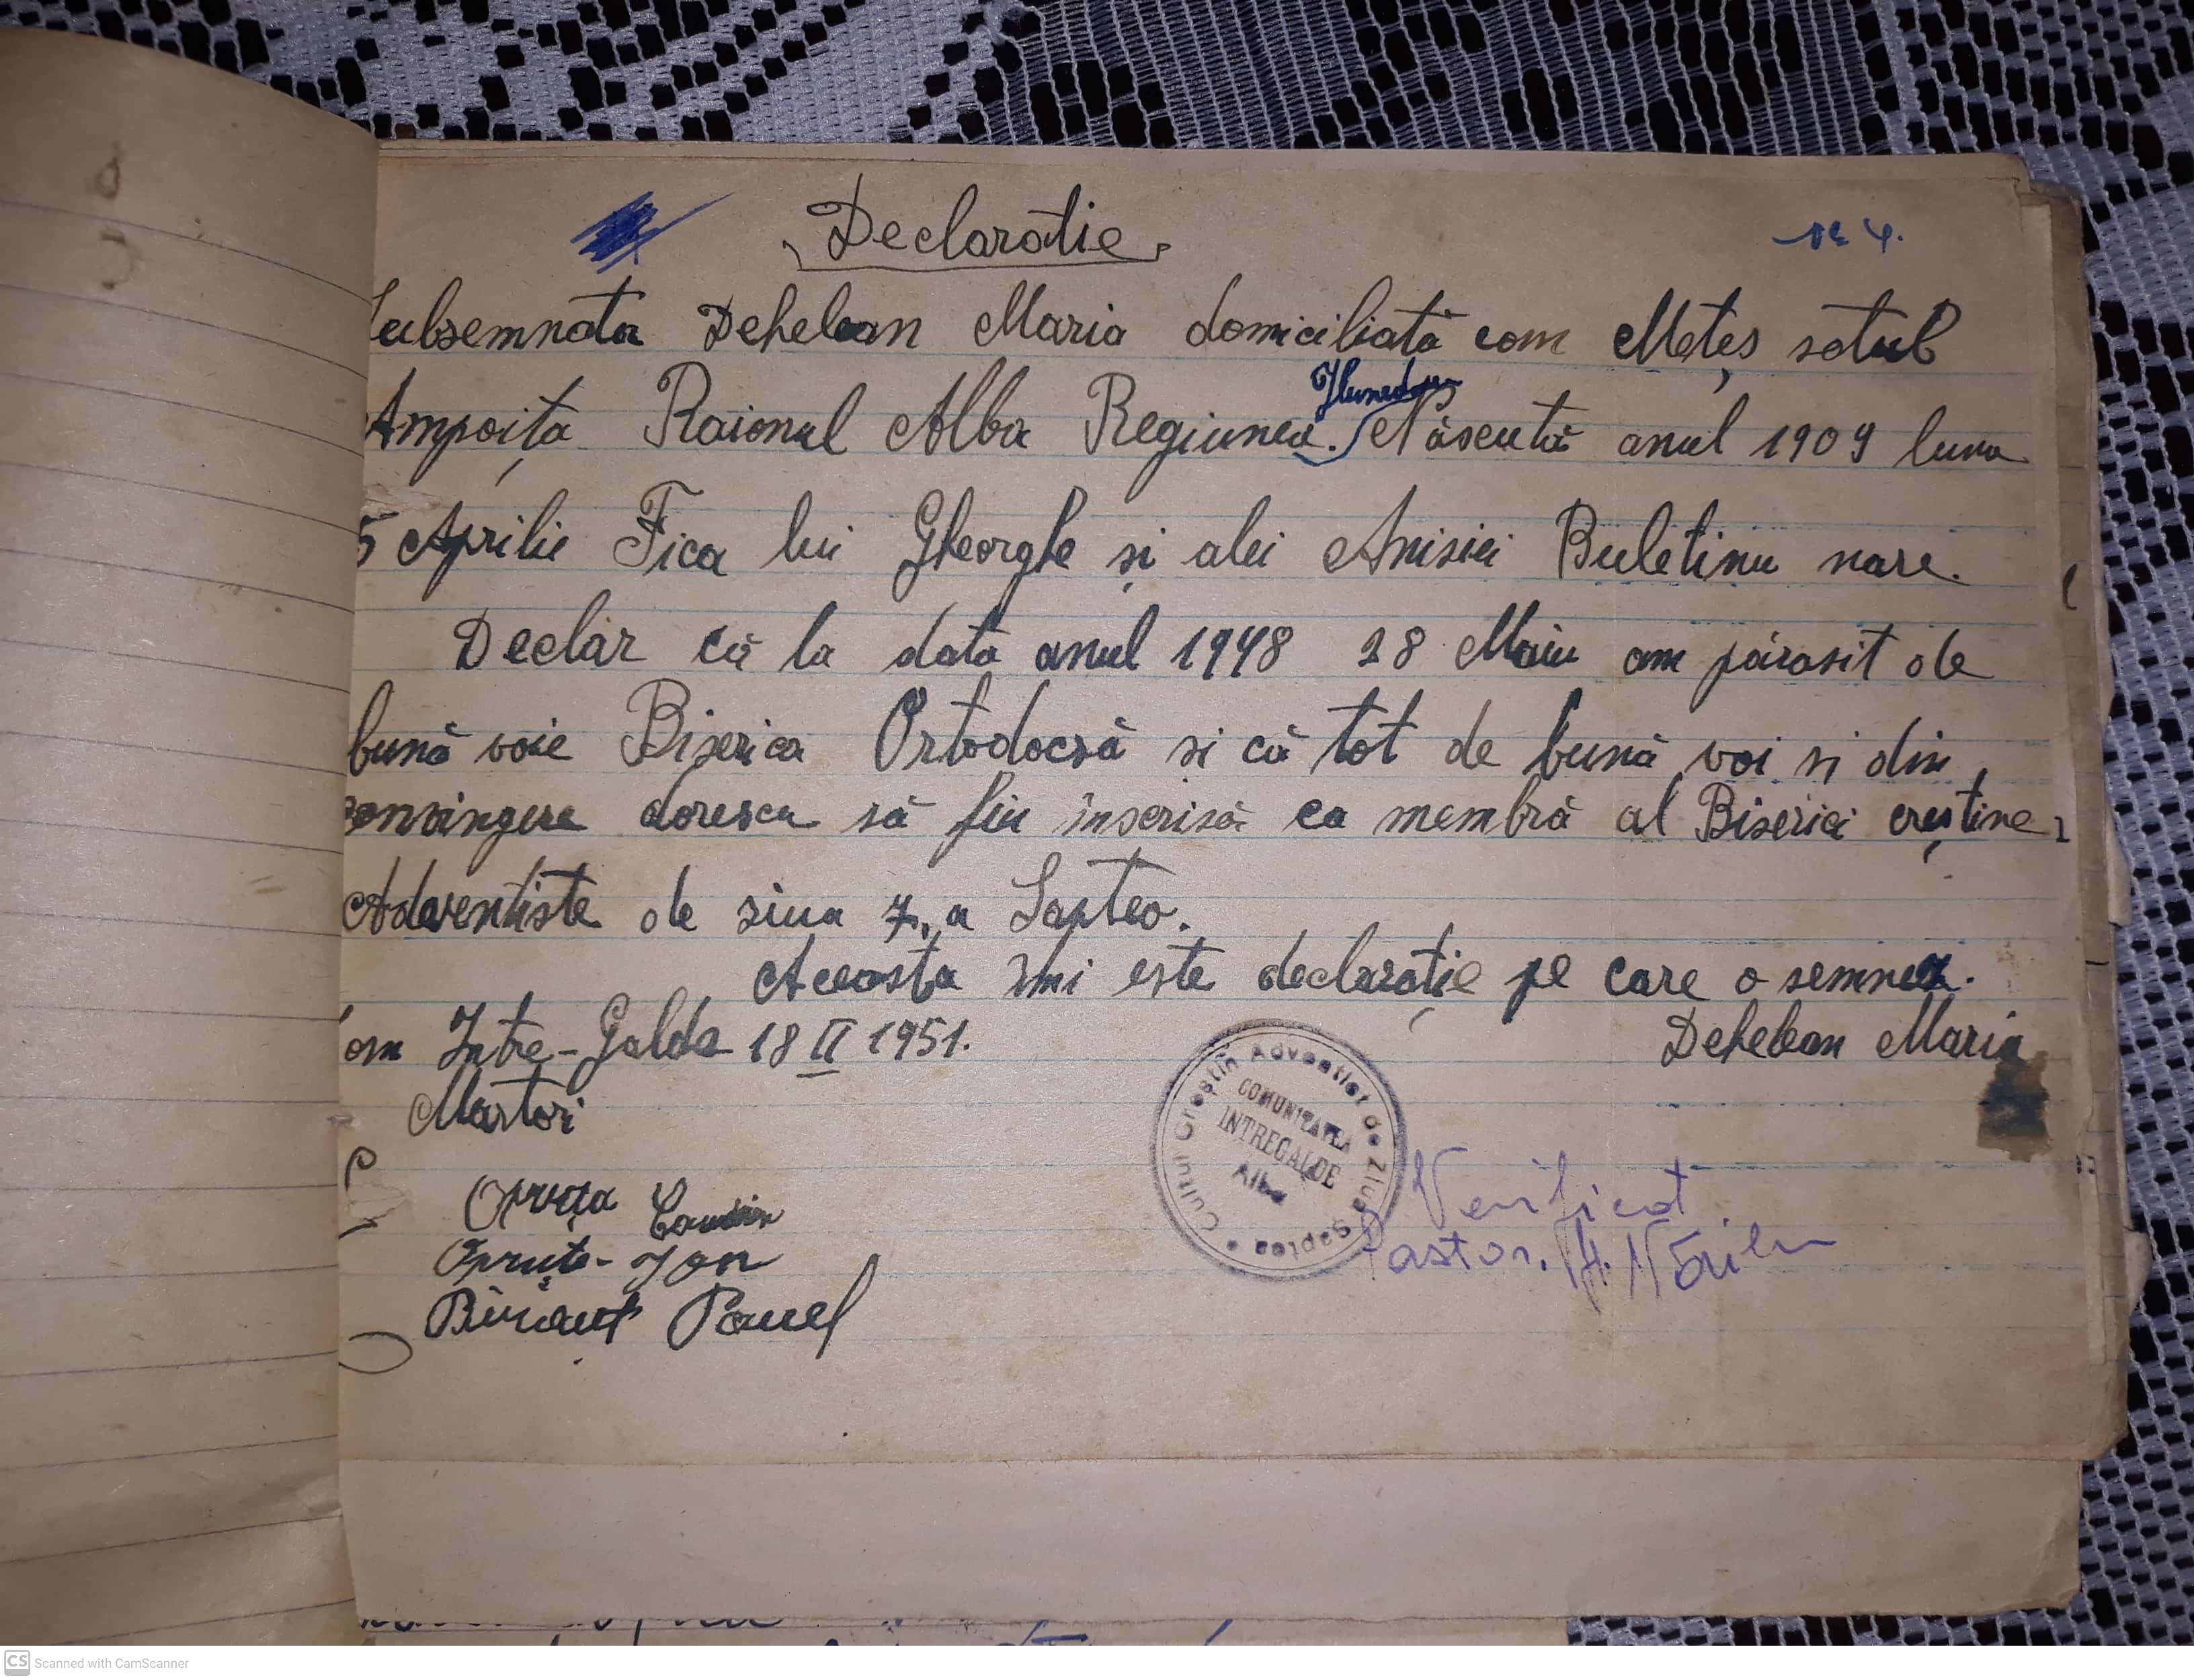 Declaratie
Nr 4.
Subsemnata Dehelean Maria domiciliată com Meteș satul
Ampoița Raionul Alba Regiunea. Hunedoara Născută anul 1909 luna
5 Aprilie Fica lui Gheorghe și alei Anisiei Buletinu nare.
Declar că la data anul 1948 28 Maiu am părasit de
bună voie Biserica Ortodocsă si că tot de bună voi si din
convingere dorescu să fiu înscrisă ca membră al Biserici creștine
Adventiste de ziua 7, a Saptea.
Aceasta îmi este declarație pe care o semnez.
om Intre-Galde 18 II 1951.
Dehelean Maria
Martori
Opruța
Opruța-Ion
Pavel
Cultul Creștin Adventist de Ziua Șaptea
COMUNITATEA
INTREGALDE
Alba
Verificat
Pastor. H.
CS Scanned with CamScanner